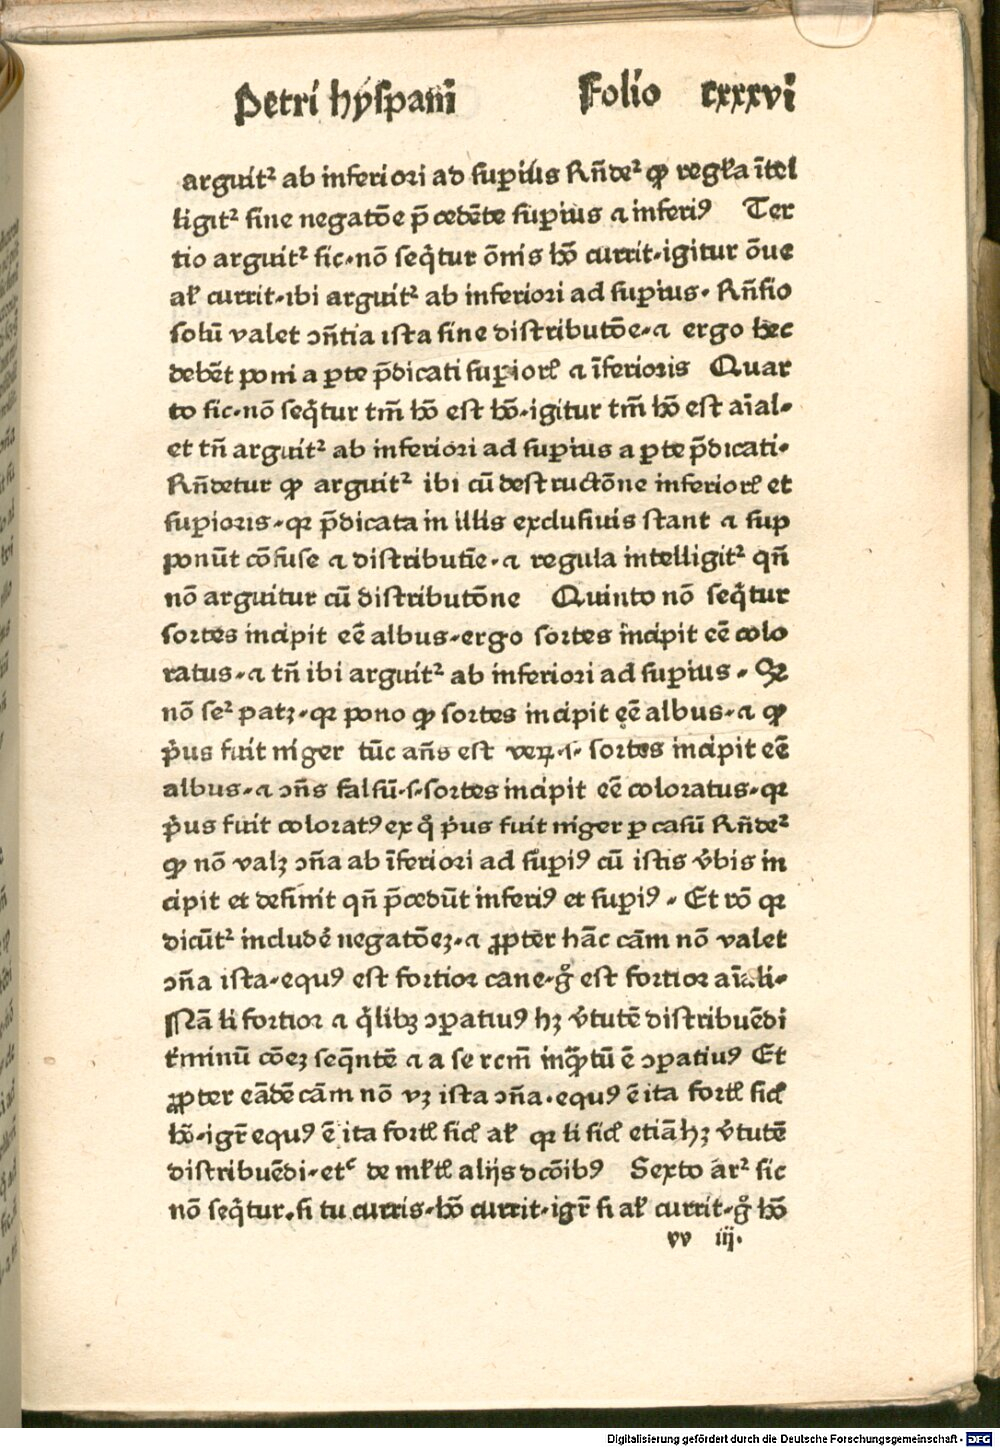 Petri hyſpani Folio cxxxvi
arguitᷣ ab inferiori ad ſuꝑius Rñdeᷣ ꝙ regl̃a ĩtel
ligitᷣ ſine negatõe p̃cedẽte ſuꝑius ⁊ inferiꝰ Ter
tio arguitᷣ ſic·nõ ſeq̃tur õnis hõ currit·igitur õne
al̃ currit·ibi arguitᷣ ab inferiori ad ſuꝑius· Rñſio
ſolũ valet ↄñtia iſta ſine diſtributõe·⁊ ergo hec
debẽt poni a ꝑte p̃dicati ſuꝑioꝝ ⁊ ĩferioris Quar
to ſic·nõ ſeq̃tur tm̃ hõ eſt hõ·igitur tm̃ hõ eſt aĩal·
et tñ arguitᷣ ab inferiori ad ſuꝑius a ꝑte p̃dicati·
Rñdetur ꝙ arguitᷣ ibi cũ deſtructõne inferioꝝ et
ſuꝑioris·qꝛ p̃dicata in illis excluſiuis ſtant ⁊ ſup
ponũt cõfuſe ⁊ diſtributĩe·⁊ regula intelligitᷣ qñ
nõ arguitur cũ diſtributõne Quinto nõ ſeq̃tur
ſortes incipit eẽ albus·ergo ſortes incipit eẽ colo
ratus·⁊ tñ ibi arguitᷣ ab inferiori ad ſuꝑius· Qꝛ
nõ ſeᷣ patꝫ·qꝛ pono ꝙ ſortes incipit eẽ albus·⁊ ꝙ
p̃us fuit niger tũc añs eſt veꝝ·ſ· ſortes incipit eẽ
albus·⁊ ↄñs falſũ·ſ·ſortes incipit eẽ coloratus·qꝛ
p̃us fuit coloratꝰ ex q̊ p̃us fuit niger ꝑ caſũ Rñdeᷣ
ꝙ nõ valꝫ ↄña ab ĩferiori ad ſuꝑiꝰ cũ iſtis v̾bis in
cipit et deſinit qñ p̃cedũt inferiꝰ et ſuꝑiꝰ· Et rõ qꝛ
dicũtᷣ includẽ negatõeꝫ·⁊ ꝓpter hãc cãm nõ valet
ↄña iſta·equꝰ eſt fortior cane·g̊ eſt fortior aĩali·
Nã li fortior ⁊ q̃libꝫ ↄꝑatiuꝰ hꝫ v̾tutẽ diſtribuẽdi
t̾minũ cõeꝫ ſeq̃ntẽ ⁊ a ſe rcm̃ inq̃tũ ẽ ↄꝑatiuꝰ Et
ꝓpter eãdẽ cãm nõ vꝫ iſta ↄña·equꝰ ẽ ita fortꝭ ſic̃
hõ·igr̃ equꝰ ẽ ita fortꝭ ſic̃ al̃ qꝛ li ſic̃ etiã hꝫ v̾tutẽ
diſtribuẽdi·etᶜ de ml̃tꝭ alijs dcõibꝰ Sexto arᷣ ſic
nõ ſeq̃tur·ſi tu curris·hõ currit·igr̃ ſi al̃ currit·g̊ hõ
vv iij·
Digitalisierung gefördert durch die Deutsche Forschungsgemeinschaft - DFG